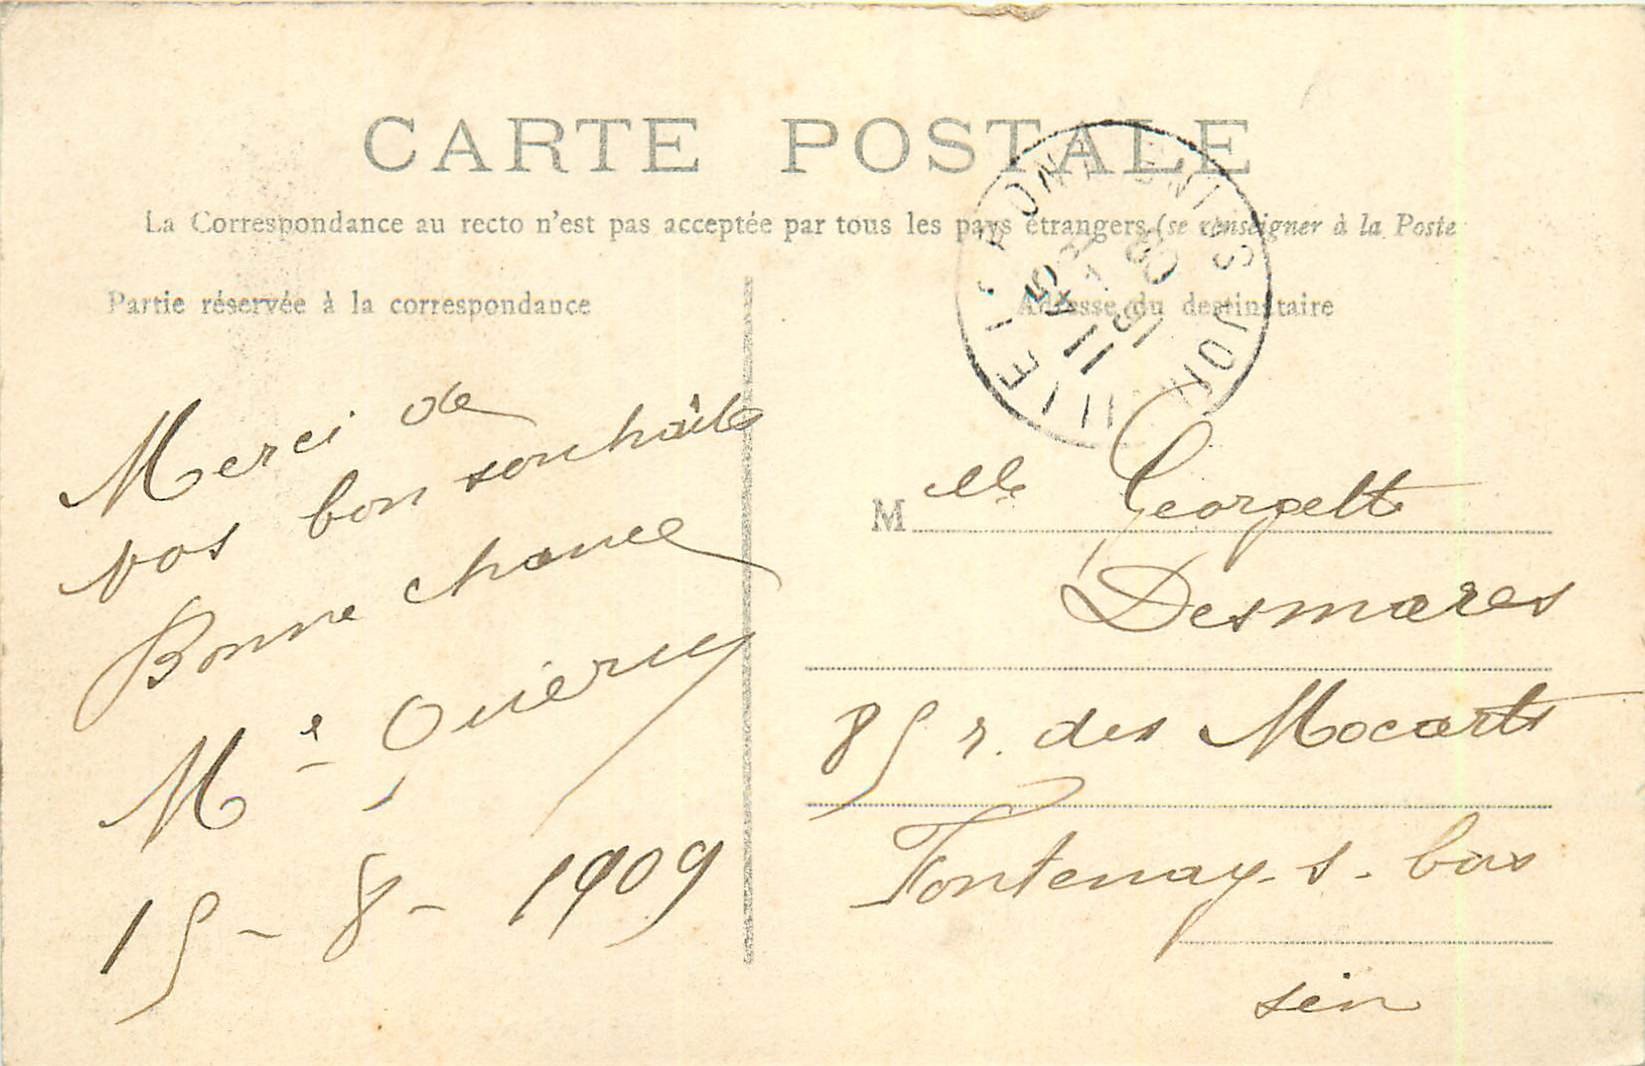 CARTE POSTALE
La Correspondance au recto n'est pas acceptée par tous les pays étrangers (se renseigner à la Poste
Partie réservée à la correspondance
Merci de
vos bon souhaits
Bonne chance
Me
15 - 8 - 1909
Adresse du destinataire
Melle Georgette
Desmares
85 r. des Mocarts
Fontenay. s. bois
sein